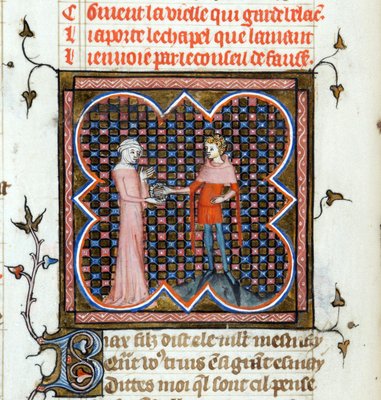 Coment la vielle qui garde belac.
li aporte le chapel que lamant
li enuoie par le conseil de faus
Biax filz dist ele mlt mesmay
Quant vos truis en si grant esmay
Dites moi ql sont cil pense